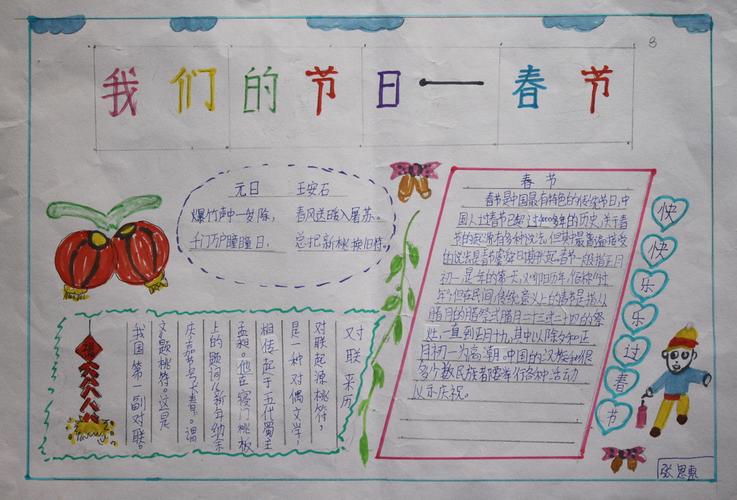 我们的节日——春节
8
元日 王安石
爆竹声中一岁除，春风送暖入屠苏。
千门万户曈曈日，总把新桃换旧符。
春节
春节是中国最有特色的传统节日，中
国人过春节已超过4000多年的历史，关于春
节的起源有多种说法，但其中最普遍接受
的说法是春节由虞舜时期兴起。春节一般指正月
初一，是一年的第一天，又叫阴历年，俗称"过
年"。但在民间，传统意义上的春节是指从
腊月的腊祭或腊月二十三或二十四的祭
灶，一直到正月十九，其中以除夕和正
月初一为高潮。中国的汉族和很
多少数民族都要举行各种活动
以示庆祝。
快
快
乐
乐
过
春
节
对联来历
对联起源桃符，
是一种对偶文学，
相传起于五代蜀主
孟昶。他在寝门桃板
上的题词"新年纳余
庆，嘉节号长春"，谓
文"题桃符"。这是
我国第一副对联。
张思惠